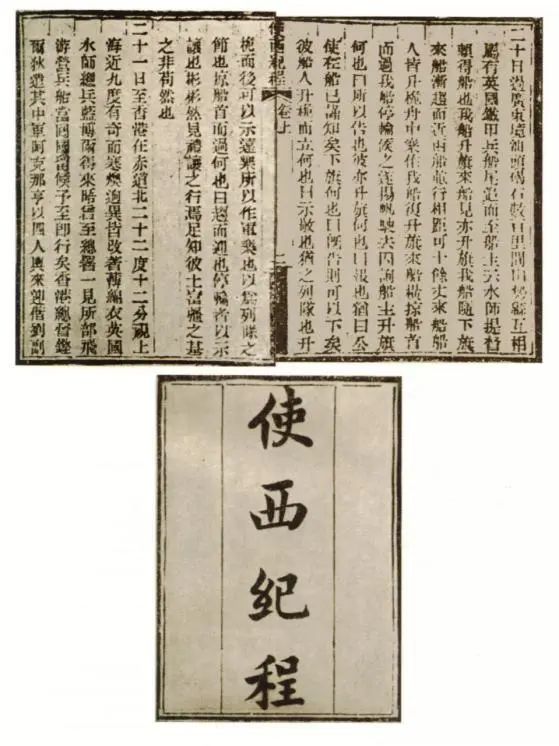 二十日過廣東境汕頭碣石數百里間山勢綿互相
屬有英國鐵甲兵船尾追而至船主云水師提督
賴得船也我船升旗來船見亦升旗我船隨下旗
來船漸趨而近兩船並行相距可十餘丈來船船
人皆升桅舟中樂作我船復升旗來船橫掠船首
而過我船停輪候之遂揚帆駛去因詢船主升旗
何也曰所以告也彼亦升旗何也曰報也猶曰公
使在船已謹知矣下旗何也曰既告則可以下矣
彼船人升桅而立何也曰示敬也猶之列隊也升
使西紀程 卷上 二
桅而後可以示遠樂所以作軍樂也以爲列隊之
節也掠船首而過何也曰趨而迎也停輪者以示
讓也彬彬然見禮讓之行焉足知彼土富強之基
之非苟然也
二十一日至香港在赤道北二十二度十二分視上
海近九度有奇而寒燠迥異皆改著薄綿衣英國
水師總兵藍博爾得來晤曾至總署一見所部飛
游營兵船當回國爲候予至即行矣香港總督鏗
爾狄遣其中軍阿克那亨以四人輿來迎偕劉副
使西紀程